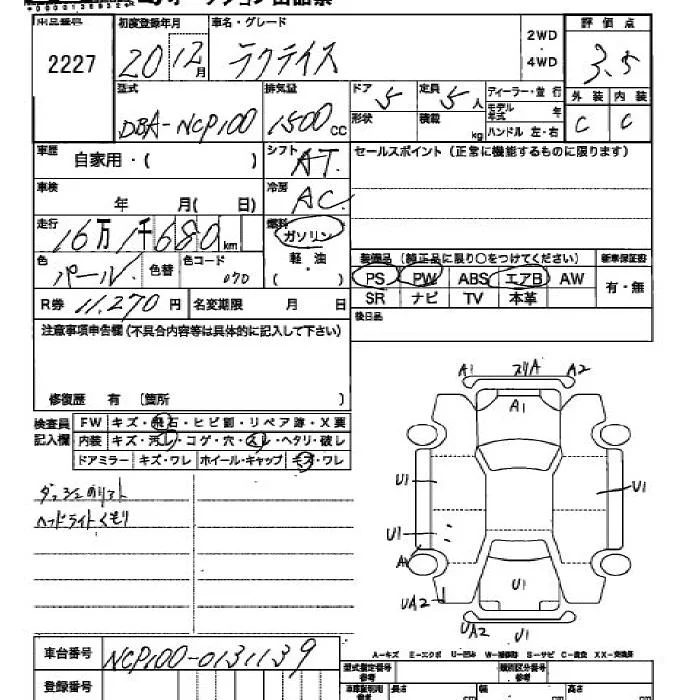 2227
初度登録年月
20 12月
車名・グレード
ラクティス
2WD
・
4WD
評価点
3.5
外装 内装
C C
型式
DBA-NCP100
排気量
1500cc
ドア 5
定員 5人
形状
積載 kg
ディーラー・並行
モデル年式 年
ハンドル 左・右
車歴 自家用・( )
シフト AT.
セールスポイント (正常に機能するものに限ります)
車検 年 月( 日)
冷房 AC
走行 16万1千680km
燃料 ガソリン
軽・油
( ・ )
色 パール. 色替 色コード 070
装備品 (純正品に限り○をつけてください)
新車保証書
PS PW ABS エアB AW
有・無
SR ナビ TV 本革
R券 11,270円 名変期限 月 日
後日品
注意事項申告欄(不具合内容等は具体的に記入して下さい)
修復歴 有 〔箇所 〕
検査員記入欄
FW キズ・飛石・ヒビ割・リペア跡・X要
内装 キズ・汚レ・コゲ・穴・スレ・ヘタリ・破レ
ドアミラー キズ・ワレ ホイール・キャップ キズ・ワレ
ヘッドライトくもり
A1 A2
A1
U1 U1
U1
U1
UA2
UA2 U1
A-キズ E-エクボ
車台番号 NCP100-0131139
登録番号
型式指定番号 参考
類別区分番号 参考
長さ cm 幅